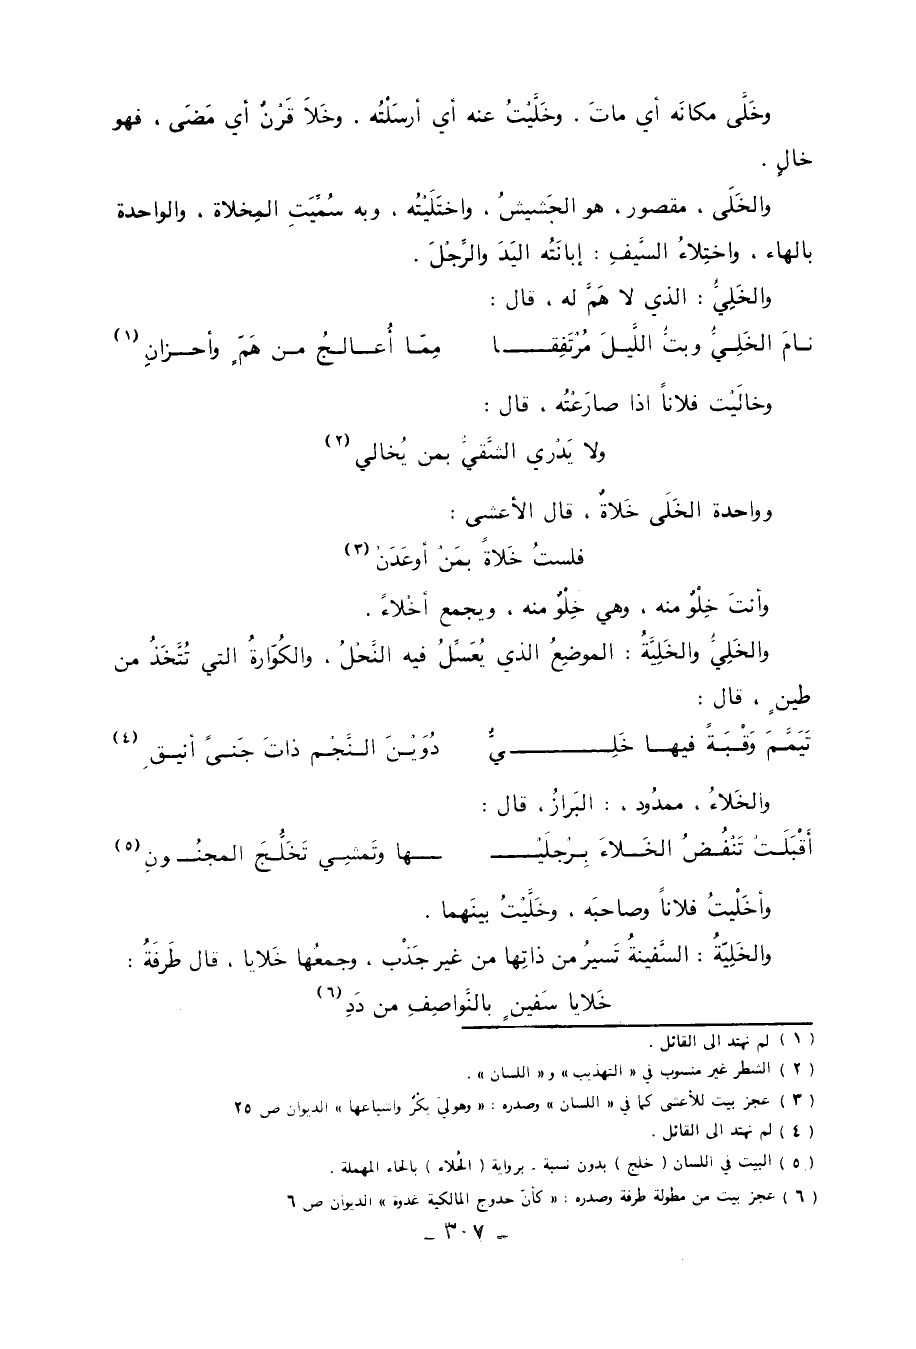 وخَلَّى مكانَه أي ماتَ . وخَلَّيْتُ عنه أي أرسَلْتُه . وخَلاَ قَرْنٌ أي مَضَى ، فهو
خالٍ .
والخَلَى ، مقصور، هو الحَشيشُ ، واختَلَيْتُه ، وبه سُمِّيَتِ المِخلاة ، والواحدة
بالهاء ، واختِلاءُ السَّيفِ : إبانَتُه اليَدَ والرِّجْلَ .
والخَلِيُّ : الذي لا هَمَّ له ، قال :
نـامَ الخَلِـيُّ وبتُ اللَّيـلَ مُرْتَفِقـــا مِمّـا أُعـالـجُ مـن هَمٍّ وأحـزانِ (١)
وخالَيْت فلاناً اذا صارَعْتُه ، قال :
ولا يَدْري الشَّقيُّ بمن يُخالي (٢)
وواحدة الخَلَى خَلاةٌ ، قال الأعشى :
فلستُ خَلاةً بمَنْ أوعَدَنْ (٣)
وأنتَ خِلْوٌ منه ، وهي خِلْوٌ منه ، ويجمع أخْلاءً .
والخَلِيُّ والخَلِيَّةُ : الموضِعُ الذي يُعَسِّلُ فيه النَّحْلُ ، والكُوّارةُ التي تُتَّخَذُ من
طينٍ ، قال :
تَيَمَّمَ وَقْبَةً فيهـا خَلِـــــيٌّ دُوَيْـنَ النَّجْـم ذاتَ جَنـىً أنيـقِ (٤)
والخَلاءُ ، ممدُود ، : البَرازُ ، قال :
أقْبَلَـتْ تَنْفُـضُ الخَـلاءَ بِـرْجلَيْـــ ــها وتَمشـي تَخَلُّـجَ المجنُـونِ (٥)
وأخلَيْتُ فلاناً وصاحبَه ، وخَلَّيْتُ بينَهما .
والخَلِيّةُ : السَّفينةُ تَسيرُ من ذاتِها من غير جَذْب ، وجمعُها خَلايا ، قال طَرَفَةُ :
خَلايا سَفينٍ بالنَّواصِفِ من دَدِ (٦)
( ١ ) لم نهتد الى القائل .
( ٢ ) الشطر غير منسوب في « التهذيب » و « اللسان » .
( ٣ ) عجز بيت للأعشى كما في « اللسان » وصدره : « وحولي بكْرٌ واشياعها » الديوان ص ٢٥
( ٤ ) لم نهتد الى القائل .
( ٥ ) البيت في اللسان ( خلج ) بدون نسبة . برواية ( الحُلاء ) بالحاء المهملة .
( ٦ ) عجز بيت من مطولة طرفة وصدره : « كأنّ حدوج المالكية غدوة » الديوان ص ٦
- ٣٠٧ -